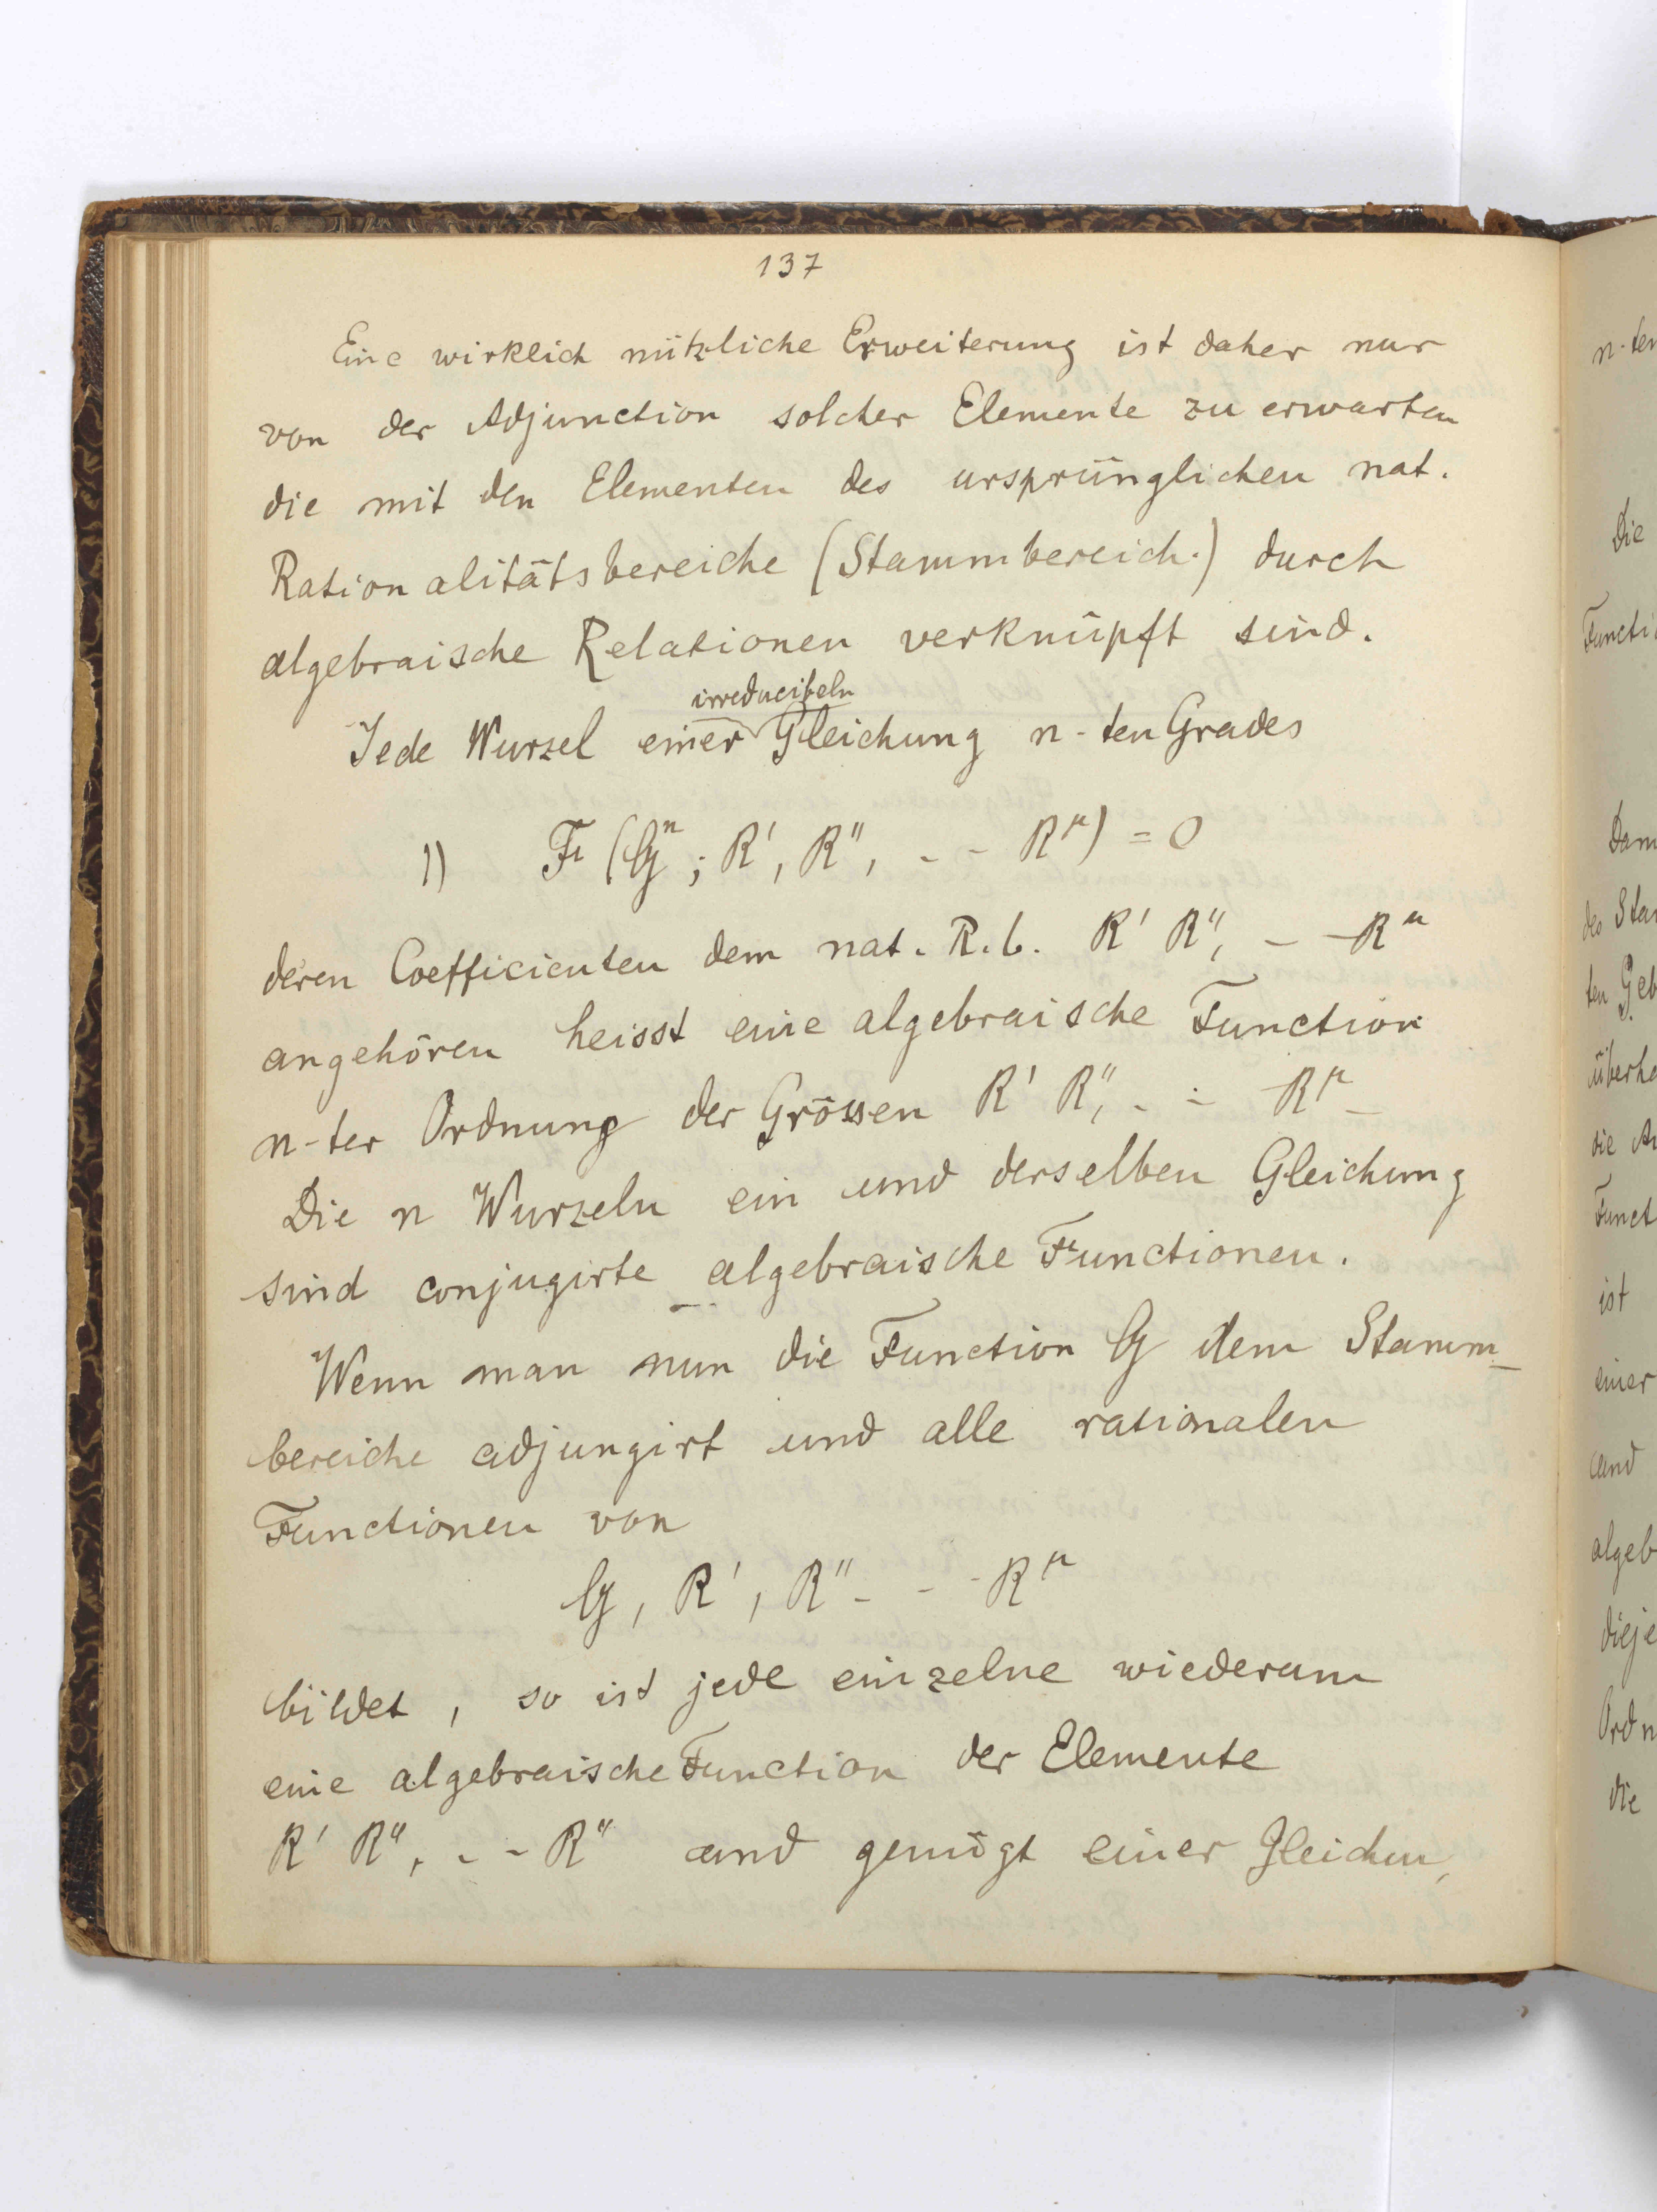 137
Eine wirklich nützliche Erweiterung ist daher nur
von der Adjunction solcher Elemente zu erwarten
die mit den Elementen des ursprünglichen nat.
Rationalitätsbereiche (Stammbereich.) durch
algebraische Relationen verknüpft sind.
irreducibeln
Jede Wurzel einer Gleichung n-ten Grades
1) F (G^n ; R', R'', - - R^μ) = 0
deren Coefficienten dem nat. R.b. R' R'', - - R^μ
angehören heisst eine algebraische Function
n-ter Ordnung der Grössen R' R'', - - R^μ -
Die n Wurzeln ein und derselben Gleichung
sind conjugirte algebraische Functionen.
Wenn man nun die Function G dem Stamm-
bereiche adjungirt und alle rationalen
Functionen von
G, R', R'' - - - R^μ
bildet, so ist jede einzelne wiederum
eine algebraische Function der Elemente
R' R'', - - R^μ und genügt einer Gleichun
n-ten
Die
Functi
Dam
des Sta
ten Geb
überha
die
Funct
ist
einer
und
algeb
dieje
Ordn
die